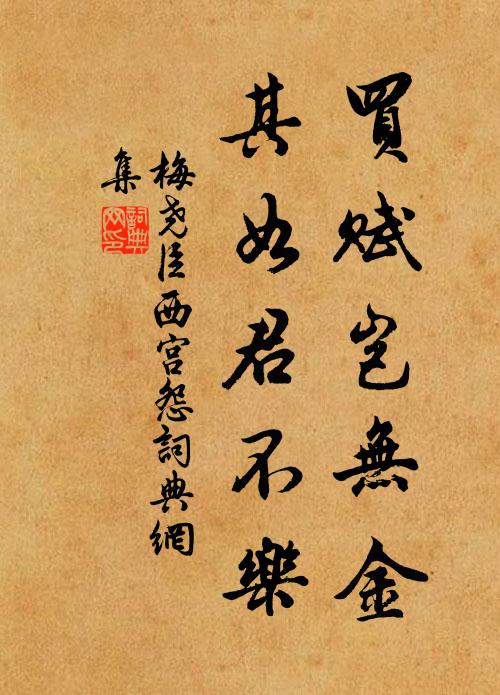 買賦豈無金
其如君不樂
梅尧臣西宫怨詞典網
集
詞典
网印